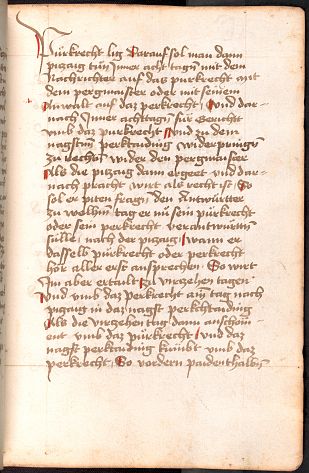 Purkrecht lig Darauf sol man dann
pitzaig tůn Inner acht tagen mit dem
Nachrichter auf das purkrecht mit
dem pergmaister oder mit seinem
Anwalt auf daz perkrecht Und dar-
nach Inner achttagen für Gericht
umb daz purkrecht Und zu dem
nagsten perktaiding widerpringen
zu rechen wider den pergmaister
Als die pitzaig dann ergeet und dar-
nach pracht wirt als recht ist So
sol er piten fragen den Antwurtter
zu welhem tag er nu sein purkrecht
oder sein perkrecht verantwurtten
sulle nach der pitzaig wann er
dasselb purkrecht oder perkrecht
hor aller erst ansprechen So wirt
Im aber ertailt zu virzehen tagen
Und umb daz perkrecht am tag nach
pitzaig in daz nagst perkchtaiding
Als die virzehen tag dann anschom-
ent umb daz purkrecht Und daz
nagst perktaiding kumbt umb daz
perkrecht So vordern paidenthalben